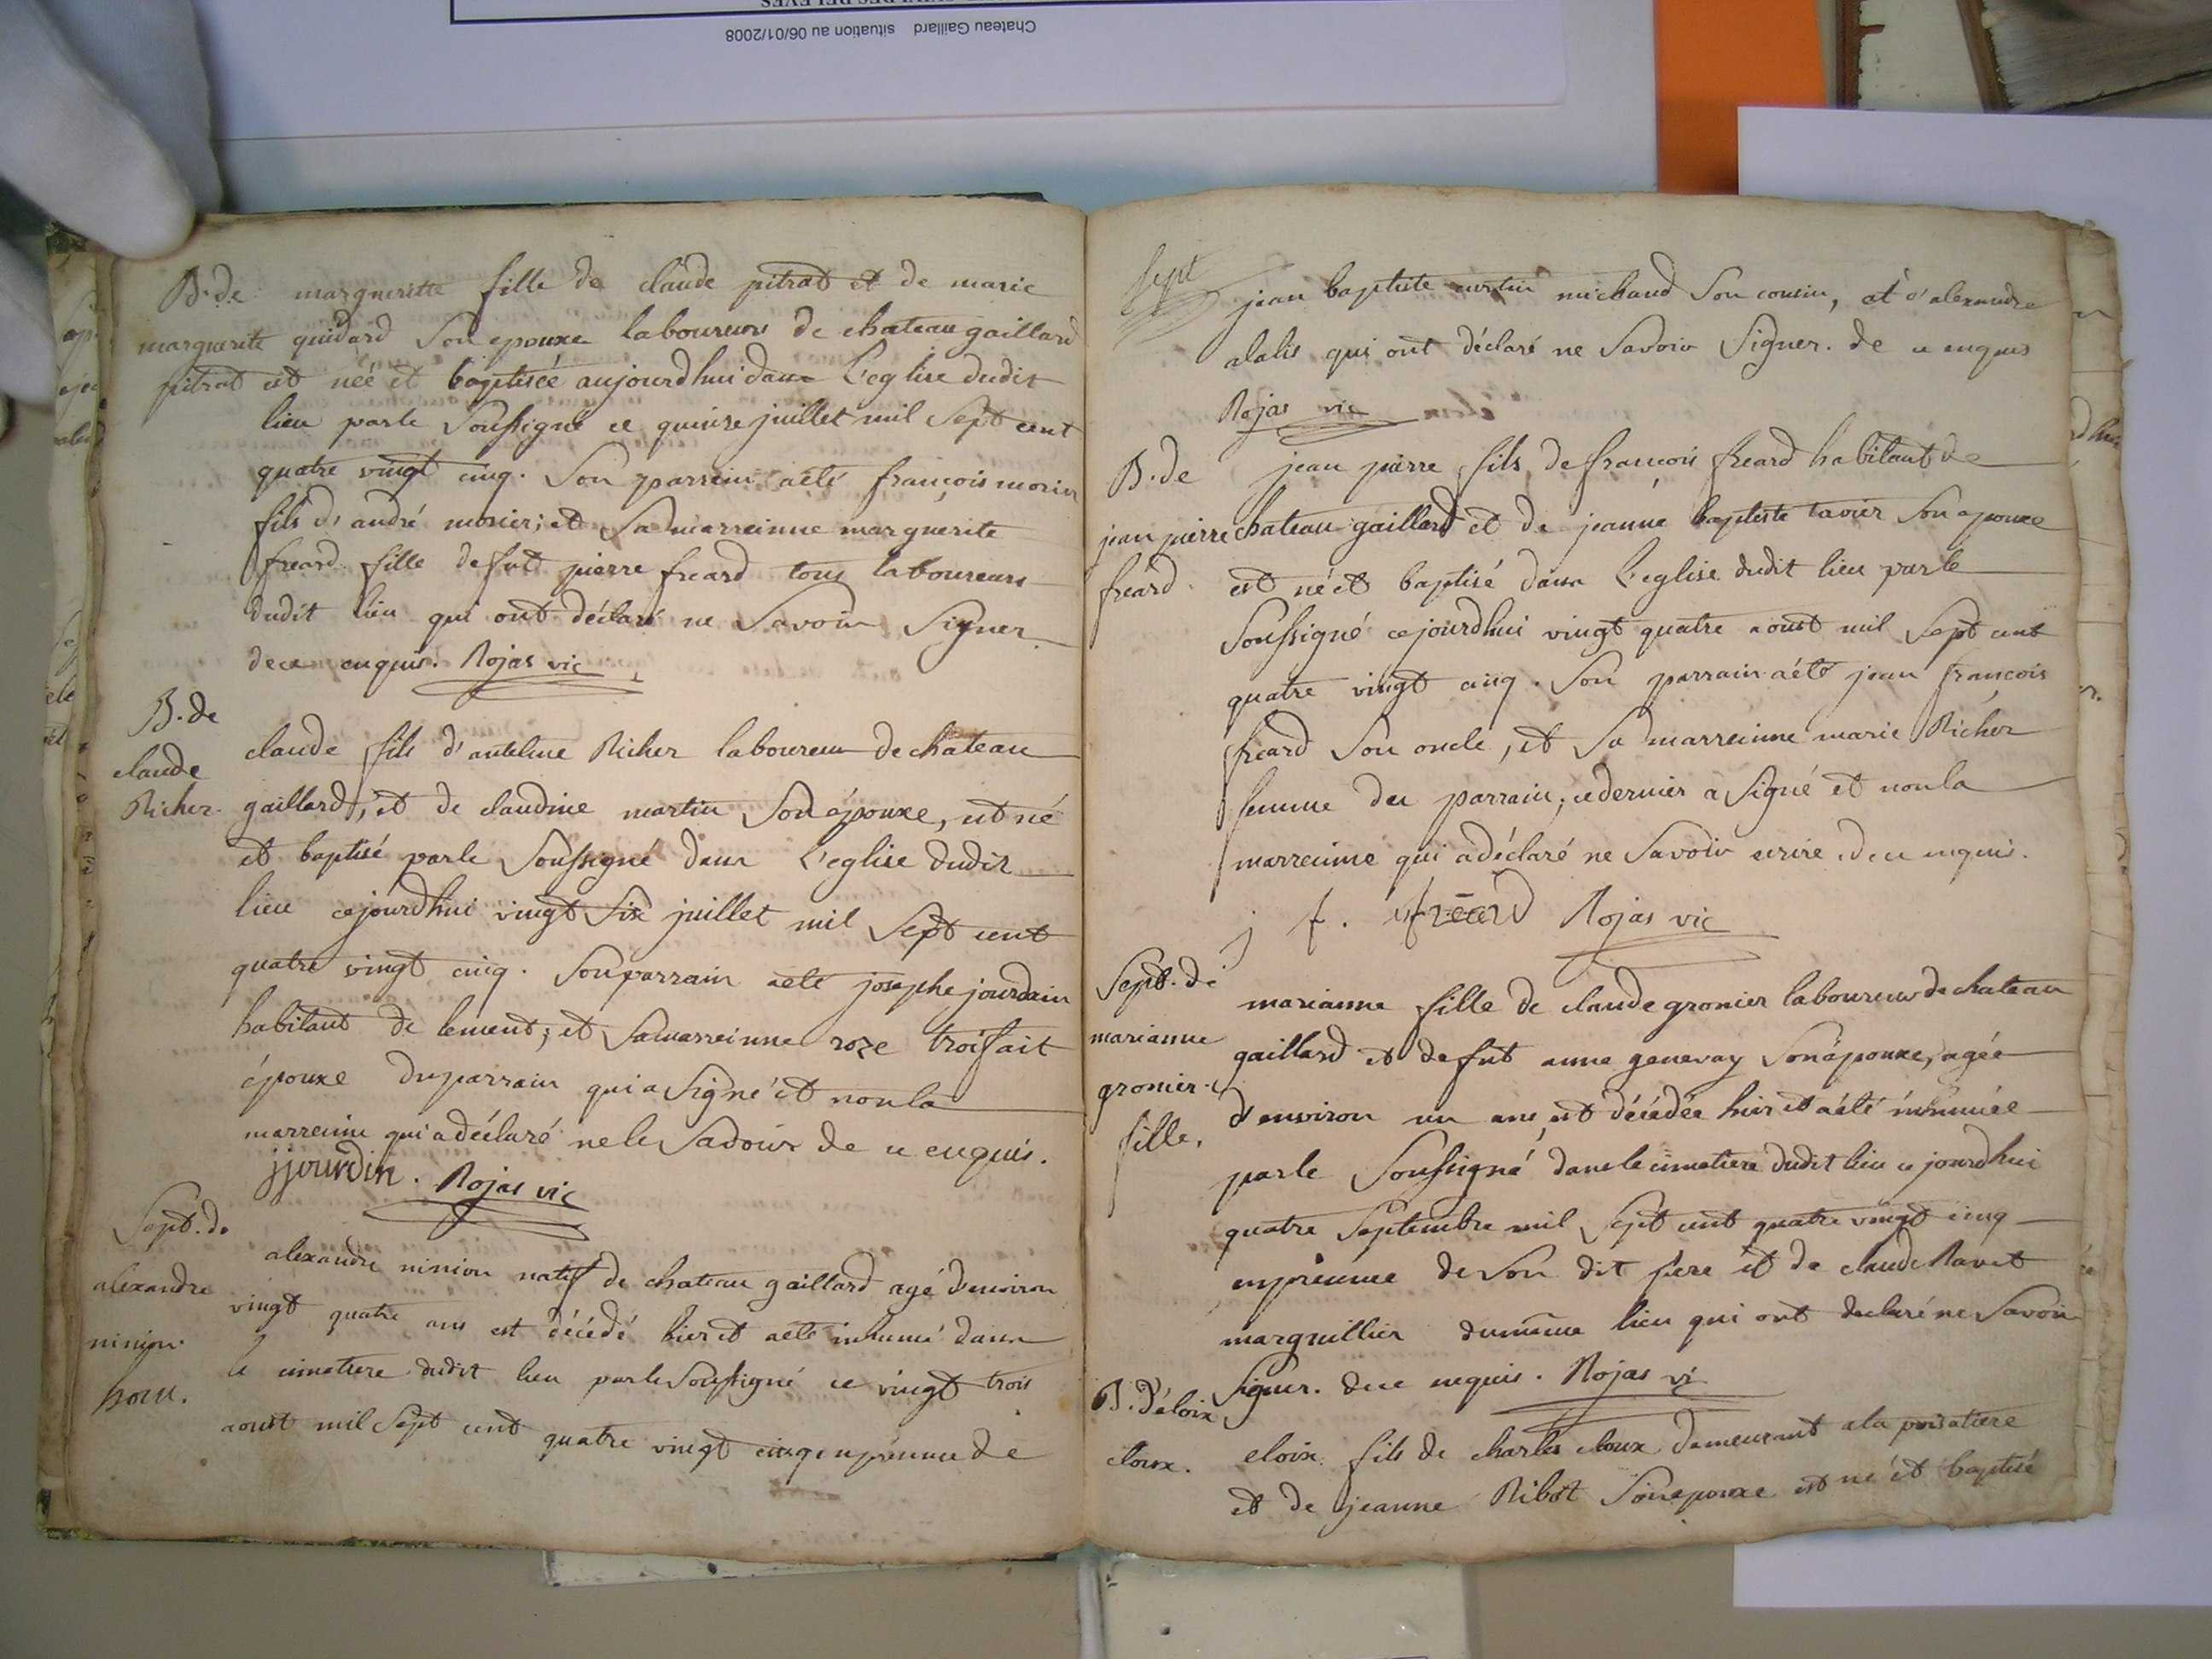 Chateau Gaillard situation au 06/01/2008
B. de margueritte fille de claude pitrat et de marie
marguerite guidard Son epouxe laboureur de chateau gaillard
pitrat est neé et baptiseé aujourdhui dans L'eglise dudit
lieu par le Soussigné ce quinze juillet mil Sept cent
quatre vingt cinq. Son parrein aété francois morier
fils d'andré morier; et Sa marreinne marguerite
freard fille defut pierre freard tous laboureurs
dudit lieu qui ont déclaré ne Savoir Signer
de ce enquis. Rojas vic
B. de
claude fils d'antelme Richer laboureur de chateau
claude
Richer. gaillard, et de claudine martin Son épouxe, est né
et baptisé par le Soussigné dans L'eglise dudit
lieu cejourdhui vingt Six juillet mil Sept cent
quatre vingt cinq. Son parrain aété josephe jourdain
habitant de lement; et Sa marreinne roze troifait
épouxe du parrain qui a Signé et non la
marreinne qui a déclaré ne le Savoir de ce enquis.
jjourdin. Rojas vic
Sept. de
alexandre ninion natif de chateau gaillard agé denviron
alexandre
vingt quatre ans est décédé hier et aété inhumé dans
ninion
le cimetiere dudit lieu par le Soussigné ce vingt trois
hom.
aoust mil Sept cent quatre vingt cinq en présence de
Sept
jean baptiste michaud Son cousin, et d'alexandre
alalis qui ont déclaré ne Savoir Signer. de ce enquis
Rojas vic
B. de jean pierre fils de francois freard habitant de
jean pierre chateau gaillard et de jeanne baptiste tavier Son epouxe
freard. est né et baptisé dans L'eglise dudit lieu par le
Soussigné cejourdhui vingt quatre aoust mil Sept cent
quatre vingt cinq. Son parrain aété jean francois
freard Son oncle, et Sa marreinne marie Richer
femme du parrain; ce dernier a Signé et non la
marreinne qui a déclaré ne Savoir ecrire de ce enquis.
j f. freard Rojas vic
Sept. de
marianne fille de claude gronier laboureur de chateau
marianne
gaillard et defut anne genevay Son épouxe, agée
gronier
d'environ un ans est décédée hier et aété inhumée
fille.
par le Soussigné dans le cimetiere dudit lieu ce jourdhui
quatre Septembre mil Sept cent quatre vingt cinq
en présence de Son dit pere et de claude Ravet
marguillier du même lieu qui ont declaré ne Savoir
Signer. de ce enquis. Rojas vi
B. d'éloix
cloux. eloix fils de charles cloux demeurant a la poisatiere
et de jeanne Ribot Son epouxe est né et baptisé